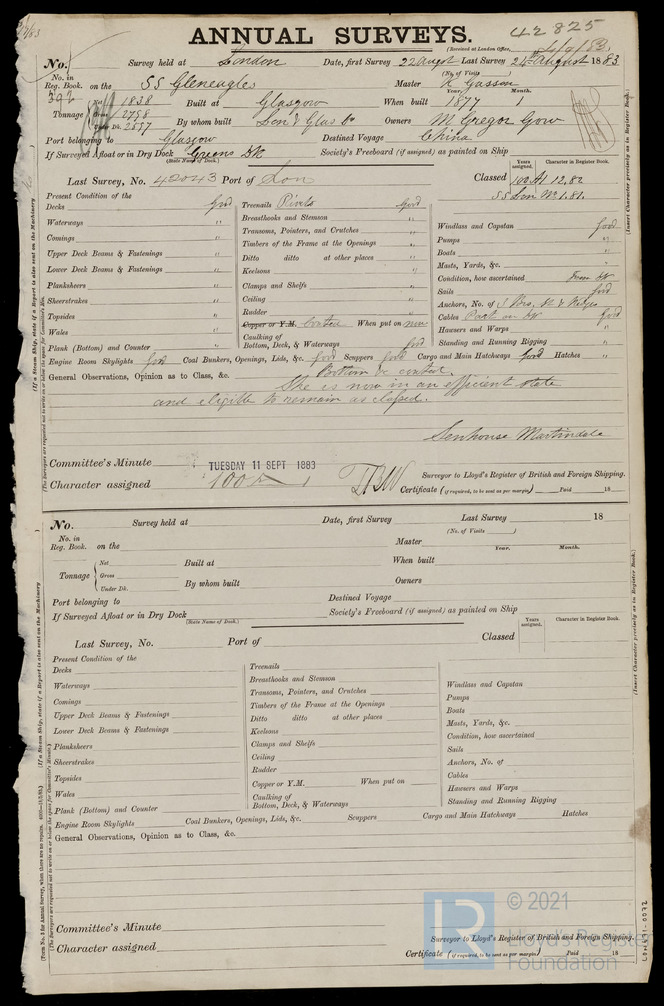 ANNUAL SURVEYS.
42825
(Received at London Office, 4/9/83
No. Survey held at London Date, first Survey 22 augst Last Survey 24th August 1883
(No. of Visits )
No. in Reg. Book. on the SS Gleneagles Master
392
Year. Month.
Tonnage Net 1838 Built at Glasgow When built 1877 1
Gross 2798
Under Dk. 2557 By whom built Lon & Glas Co Owners McGregor Gow
Port belonging to Glasgow Destined Voyage China
If Surveyed Afloat or in Dry Dock Greens Dk Society's Freeboard (if assigned) as painted on Ship
(State Name of Dock.)
Years assigned. Character in Register Book.
Last Survey, No. 42043 Port of Lon Classed 100 A1 12,82
SS Lon No 1.81.
Present Condition of the
Decks good
Waterways "
Comings "
Upper Deck Beams & Fastenings "
Lower Deck Beams & Fastenings "
Planksheers "
Sheerstrakes "
Topsides "
Wales "
Plank (Bottom) and Counter "
Treenails Rivets good
Breasthooks and Stemson "
Transoms, Pointers, and Crutches "
Timbers of the Frame at the Openings "
Ditto ditto at other places "
Keelsons "
Clamps and Shelfs "
Ceiling "
Rudder "
Copper or Y.M. Coated When put on now
Caulking of Bottom, Deck, & Waterways good
Windlass and Capstan good
Pumps "
Boats "
Masts, Yards, &c. "
Condition, how ascertained From
Sails good
Anchors, No. of 3 Bro,
Cables good
Hawsers and Warps "
Standing and Running Rigging "
Engine Room Skylights good Coal Bunkers, Openings, Lids, &c. good Scuppers good Cargo and Main Hatchways good Hatches "
General Observations, Opinion as to Class, &c. Bottom be coated.
She is now in an efficient state
and eligible to remain as classed.
Senhouse Martindale
Committee's Minute TUESDAY 11 SEPT 1883
Surveyor to Lloyd's Register of British and Foreign Shipping.
Character assigned 100 A 1
Certificate (if required, to be sent as per margin) Paid 18
No. Survey held at Date, first Survey Last Survey 18
(No. of Visits )
No. in Reg. Book. on the Master
Year. Month.
Tonnage Net Built at When built
Gross
Under Dk. By whom built Owners
Port belonging to Destined Voyage
If Surveyed Afloat or in Dry Dock Society's Freeboard (if assigned) as painted on Ship
(State Name of Dock.)
Years assigned. Character in Register Book.
Last Survey, No. Port of Classed
Present Condition of the
Decks
Waterways
Comings
Upper Deck Beams & Fastenings
Lower Deck Beams & Fastenings
Planksheers
Sheerstrakes
Topsides
Wales
Plank (Bottom) and Counter
Treenails
Breasthooks and Stemson
Transoms, Pointers, and Crutches
Timbers of the Frame at the Openings
Ditto ditto at other places
Keelsons
Clamps and Shelfs
Ceiling
Rudder
Copper or Y.M. When put on
Caulking of Bottom, Deck, & Waterways
Windlass and Capstan
Pumps
Boats
Masts, Yards, &c.
Condition, how ascertained
Sails
Anchors, No. of
Cables
Hawsers and Warps
Standing and Running Rigging
Engine Room Skylights Coal Bunkers, Openings, Lids, &c. Scuppers Cargo and Main Hatchways Hatches
General Observations, Opinion as to Class, &c.
Committee's Minute
Surveyor to Lloyd's Register of British and Foreign Shipping.
Character assigned
Certificate (if required, to be sent as per margin) Paid 18
(If a Steam Ship, state if a Report is also sent on the Machinery
(Insert Character precisely as in Register Book.)
(If a Steam Ship, state if a Report is also sent on the Machinery
(Insert Character precisely as in Register Book.)
LR
© 2021
Lloyd's Register
Foundation